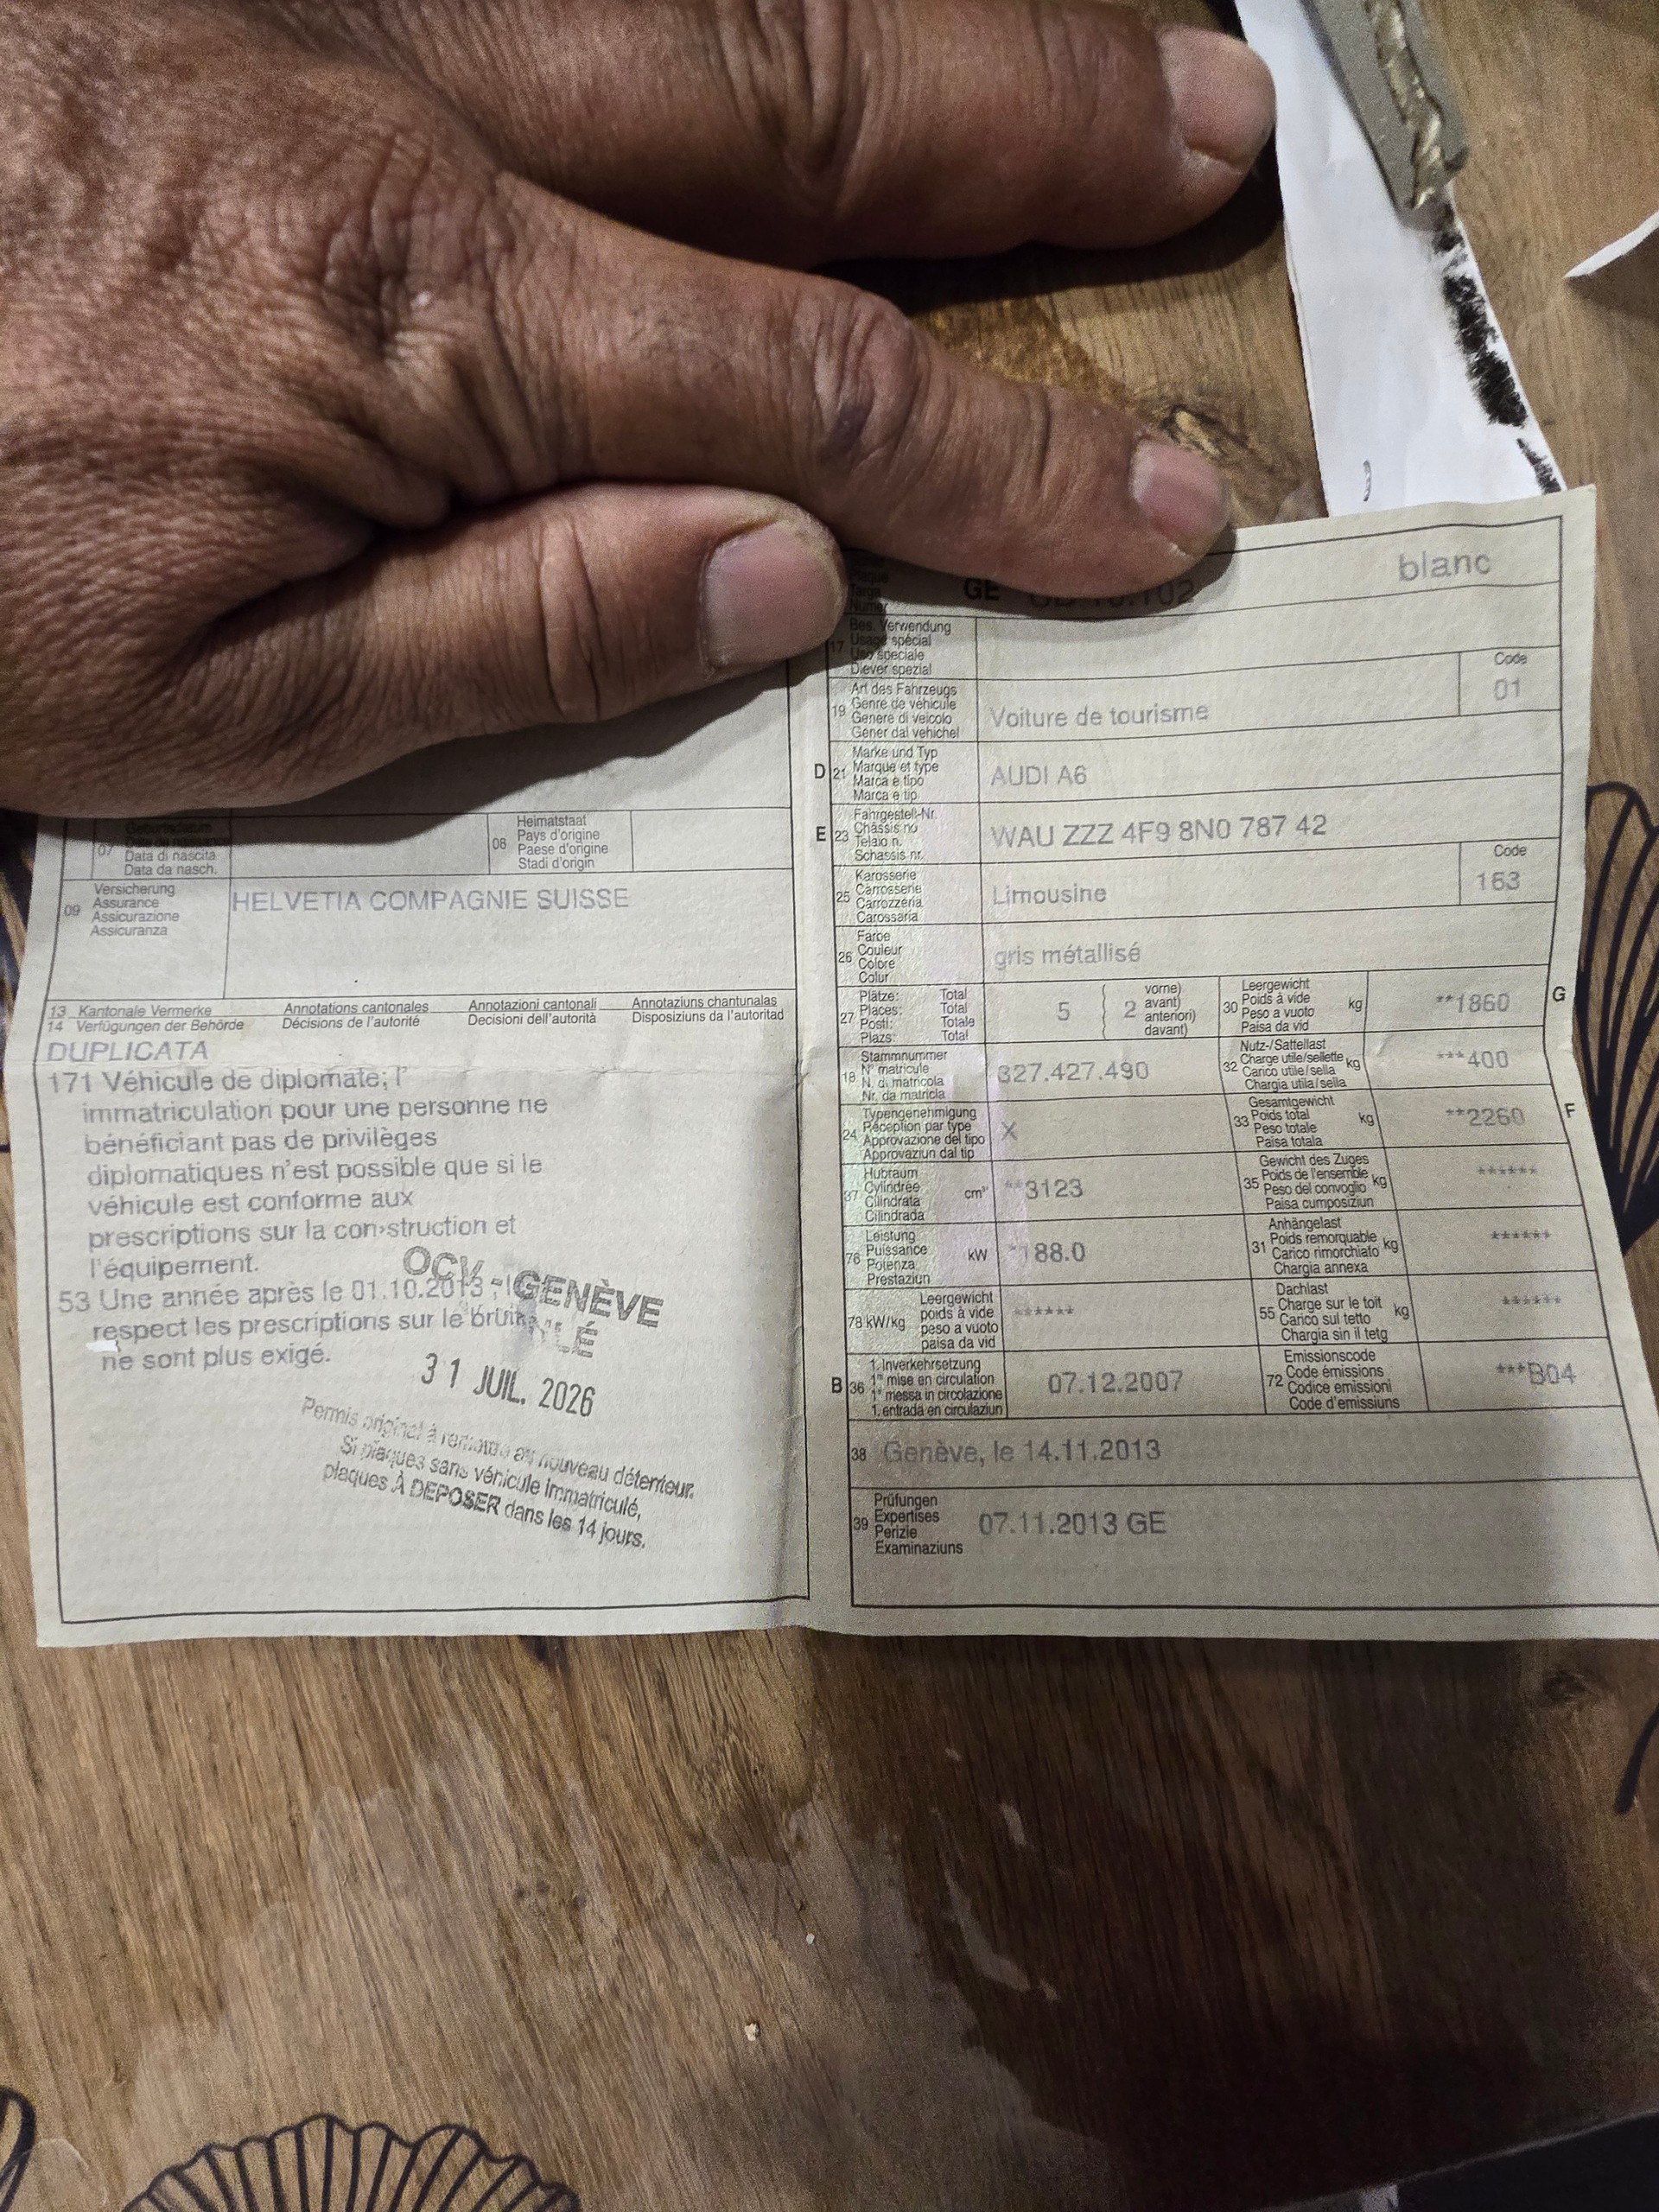 blanc
GE
Numer
17 Bes. Verwendung
Usage spécial
Uso speciale
Diever spezial
19 Art des Fahrzeugs
Genre de véhicule
Genere di veicolo
Gener dal vehichel
Voiture de tourisme
Code
01
D 21 Marke und Typ
Marque et type
Marca e tipo
Marca e tip
AUDI A6
E 23 Fahrgestell-Nr.
Châssis no
Telaio n.
Schassis nr.
WAU ZZZ 4F9 8N0 787 42
25 Karosserie
Carrosserie
Carrozzeria
Carossaria
Limousine
Code
163
26 Farbe
Couleur
Colore
Colur
gris métallisé
27 Plätze: Total
Places: Total
Posti: Totale
Plazs: Total
5
2
vorne)
avant)
anteriori)
davant)
30 Leergewicht
Poids à vide
Peso a vuoto
Paisa da vid
kg
**1860
G
18 Stammnummer
N° matricule
N. di matricola
Nr. da matricla
327.427.490
32 Nutz-/Sattellast
Charge utile/sellette
Carico utile/sella
Chargia utila/sella
kg
***400
24 Typengenehmigung
Réception par type
Approvazione del tipo
Approvaziun dal tip
X
33 Gesamtgewicht
Poids total
Peso totale
Paisa totala
kg
**2260
F
37 Hubraum
Cylindrée
Cilindrata
Cilindrada
cm³
**3123
35 Gewicht des Zuges
Poids de l'ensemble
Peso del convoglio
Paisa cumposiziun
kg
******
76 Leistung
Puissance
Potenza
Prestaziun
kW
*188.0
31 Anhängelast
Poids remorquable
Carico rimorchiato
Chargia annexa
kg
******
78 kW/kg
Leergewicht
poids à vide
peso a vuoto
paisa da vid
******
55 Dachlast
Charge sur le toit
Carico sul tetto
Chargia sin il tetg
kg
******
B 36 1. Inverkehrsetzung
1re mise en circulation
1a messa in circolazione
1. entrada en circulaziun
07.12.2007
72 Emissionscode
Code émissions
Codice emissioni
Code d'emissiuns
***B04
38 Genève, le 14.11.2013
39 Prüfungen
Expertises
Perizie
Examinaziuns
07.11.2013 GE
07 Geburtsdatum
Data di nascita
Data da nasch.
08 Heimatstaat
Pays d'origine
Paese d'origine
Stadi d'origin
09 Versicherung
Assurance
Assicurazione
Assicuranza
HELVETIA COMPAGNIE SUISSE
13 Kantonale Vermerke Annotations cantonales Annotazioni cantonali Annotaziuns chantunalas
14 Verfügungen der Behörde Décisions de l'autorité Decisioni dell'autorità Disposiziuns da l'autoritad
DUPLICATA
171 Véhicule de diplomate; l'
immatriculation pour une personne ne
bénéficiant pas de privilèges
diplomatiques n'est possible que si le
véhicule est conforme aux
prescriptions sur la construction et
l'équipement.
53 Une année après le 01.10.2013
respect les prescriptions sur le bruit
ne sont plus exigé.
OCV - GENÈVE
31 JUIL. 2026
Permis original à remettre au nouveau détenteur.
Si plaques sans véhicule immatriculé,
plaques À DEPOSER dans les 14 jours.